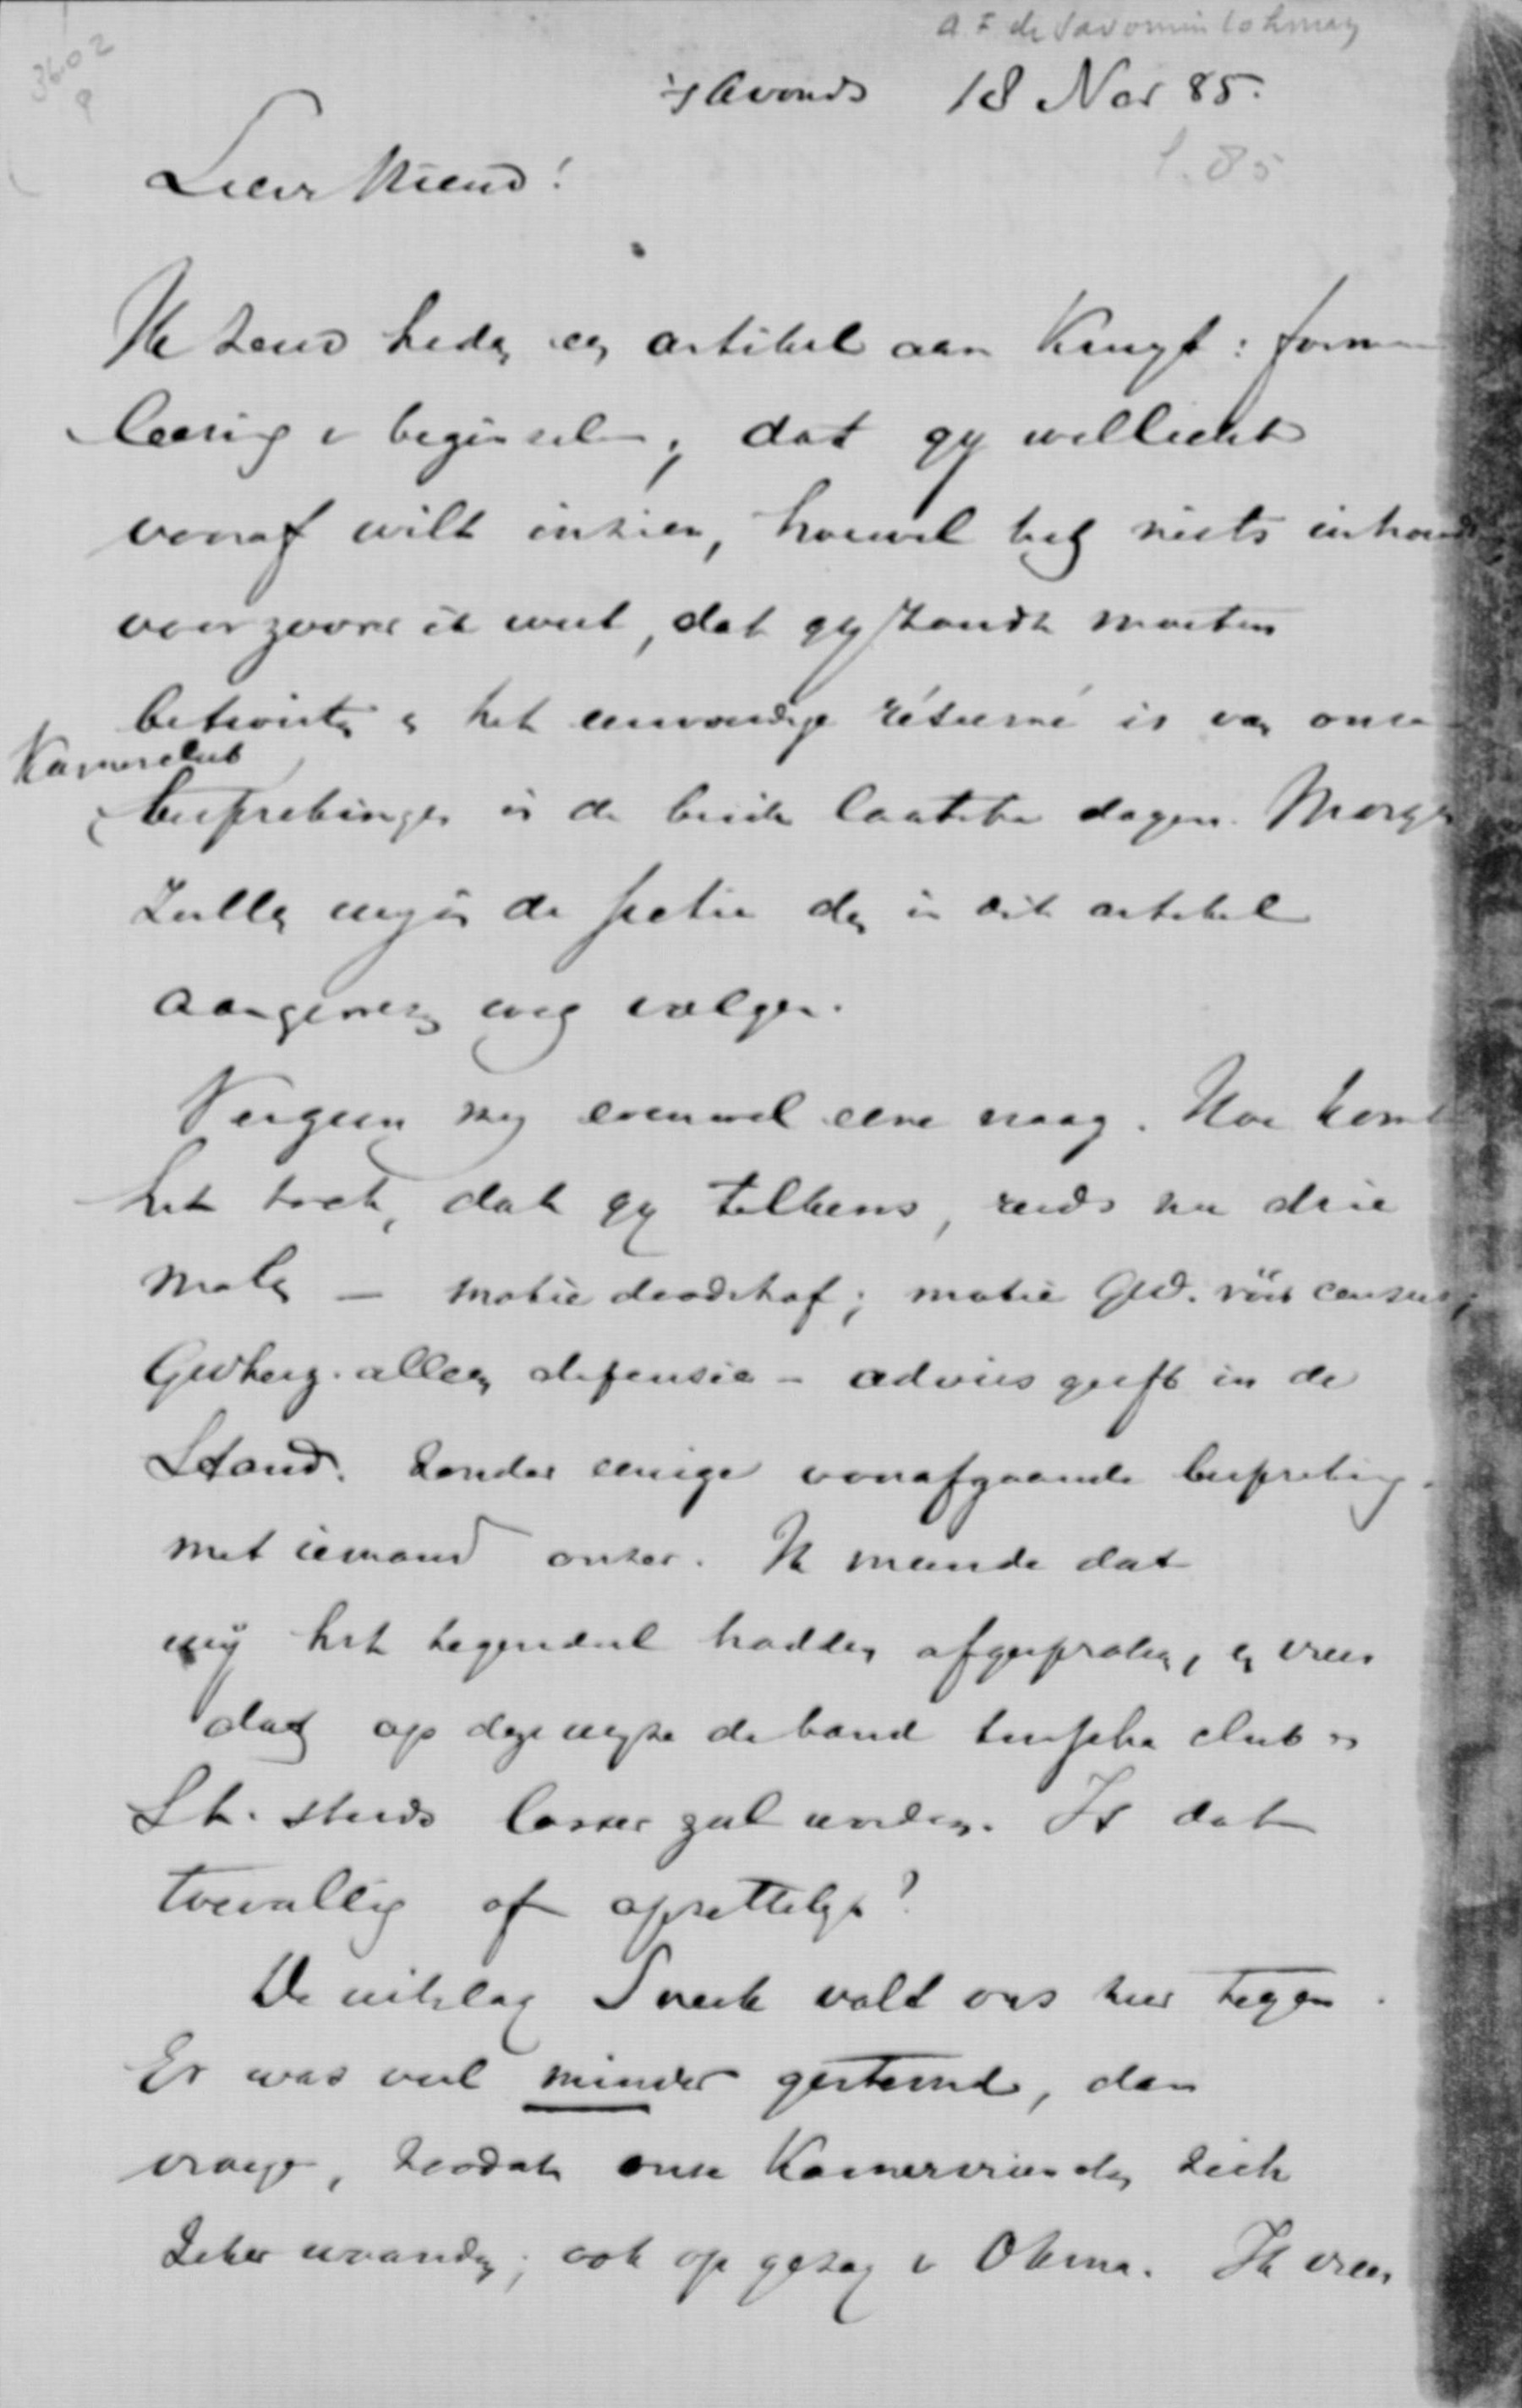 3602
a. F. de Savornin Lohman
's Avonds 18 Nov 85.
1.85
Lieve Vriend!
Ik zend heden een artikel aan Kruyt:
looring v beginselen; dat gy wellicht
vooraf wilt inzien, hoewel het niets inhoudt
voor zoover ik weet, dat gy zoudt moeten
betwisten en het eenvoudige résumé is van onze
Kamerclub
besprekingen in de beide laatste dagen. Morgen
zullen wy in de sectie den in dit artikel
aangewezen weg volgen.
Vergun my evenwel eene vraag. Hoe komt
het toch, dat gy telkens, reeds nu drie
malen - motie doodstraf; motie Grd. vóór census;
Grdherz. alleen defensie - advies geeft in de
Stand. zonder eenige voorafgaande bespreking
met iemand onzer. Ik meende dat
wij het tegendeel hadden afgesproken, en vrees
dat op deze wyze de band tusschen club en
St. steeds losser zal worden. Is dat
toevallig of opzettelyk?
De uitslag Sneek valt ons hier tegen.
Er was veel minder gestemd, dan
vroeger, zoodat onze Kamervrienden zich
zeker waanden; ook op gezag v Okma. Ik vrees